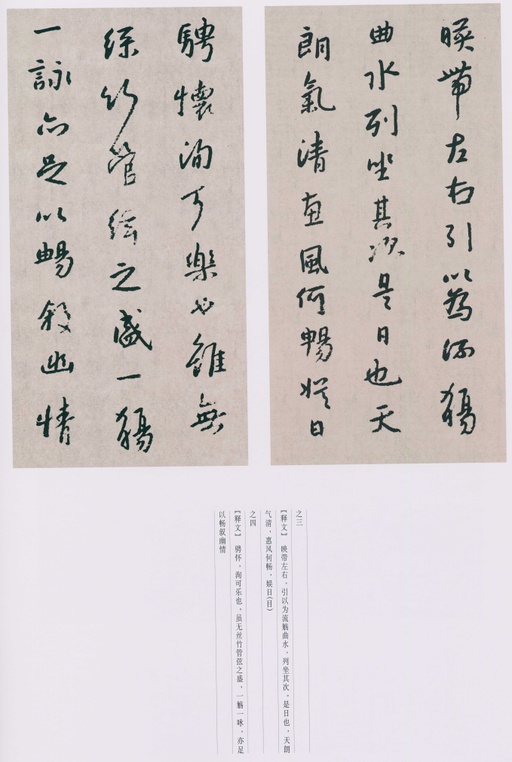 暎帶左右引以為流觴
曲水列坐其次是日也天
朗氣清惠風何暢娛日
騁懷洵可樂也雖無
絲竹管絃之盛一觴
一詠亦足以暢叙幽情
之三
【释文】 映带左右,引以为流觞曲水,列坐其次,是日也,天朗
气清,惠风何畅,娱日(目)
之四
【释文】 骋怀,洵可乐也,虽无丝竹管弦之盛,一觞一咏,亦足
以畅叙幽情